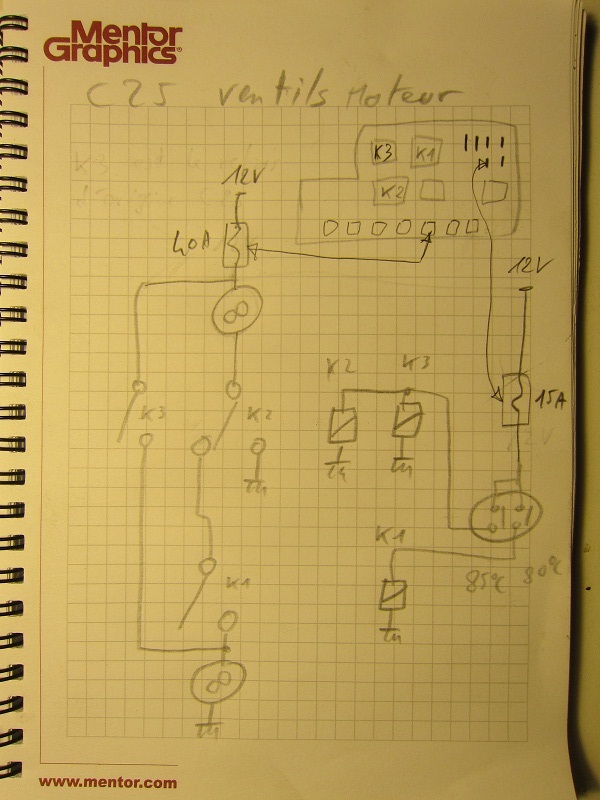 Mentor
Graphics®
C25 ventils moteur
K3 K1
K2
12V
40A
12V
15A
K2 K3
K3 K2
K1
K1
85°C 80°C
www.mentor.com